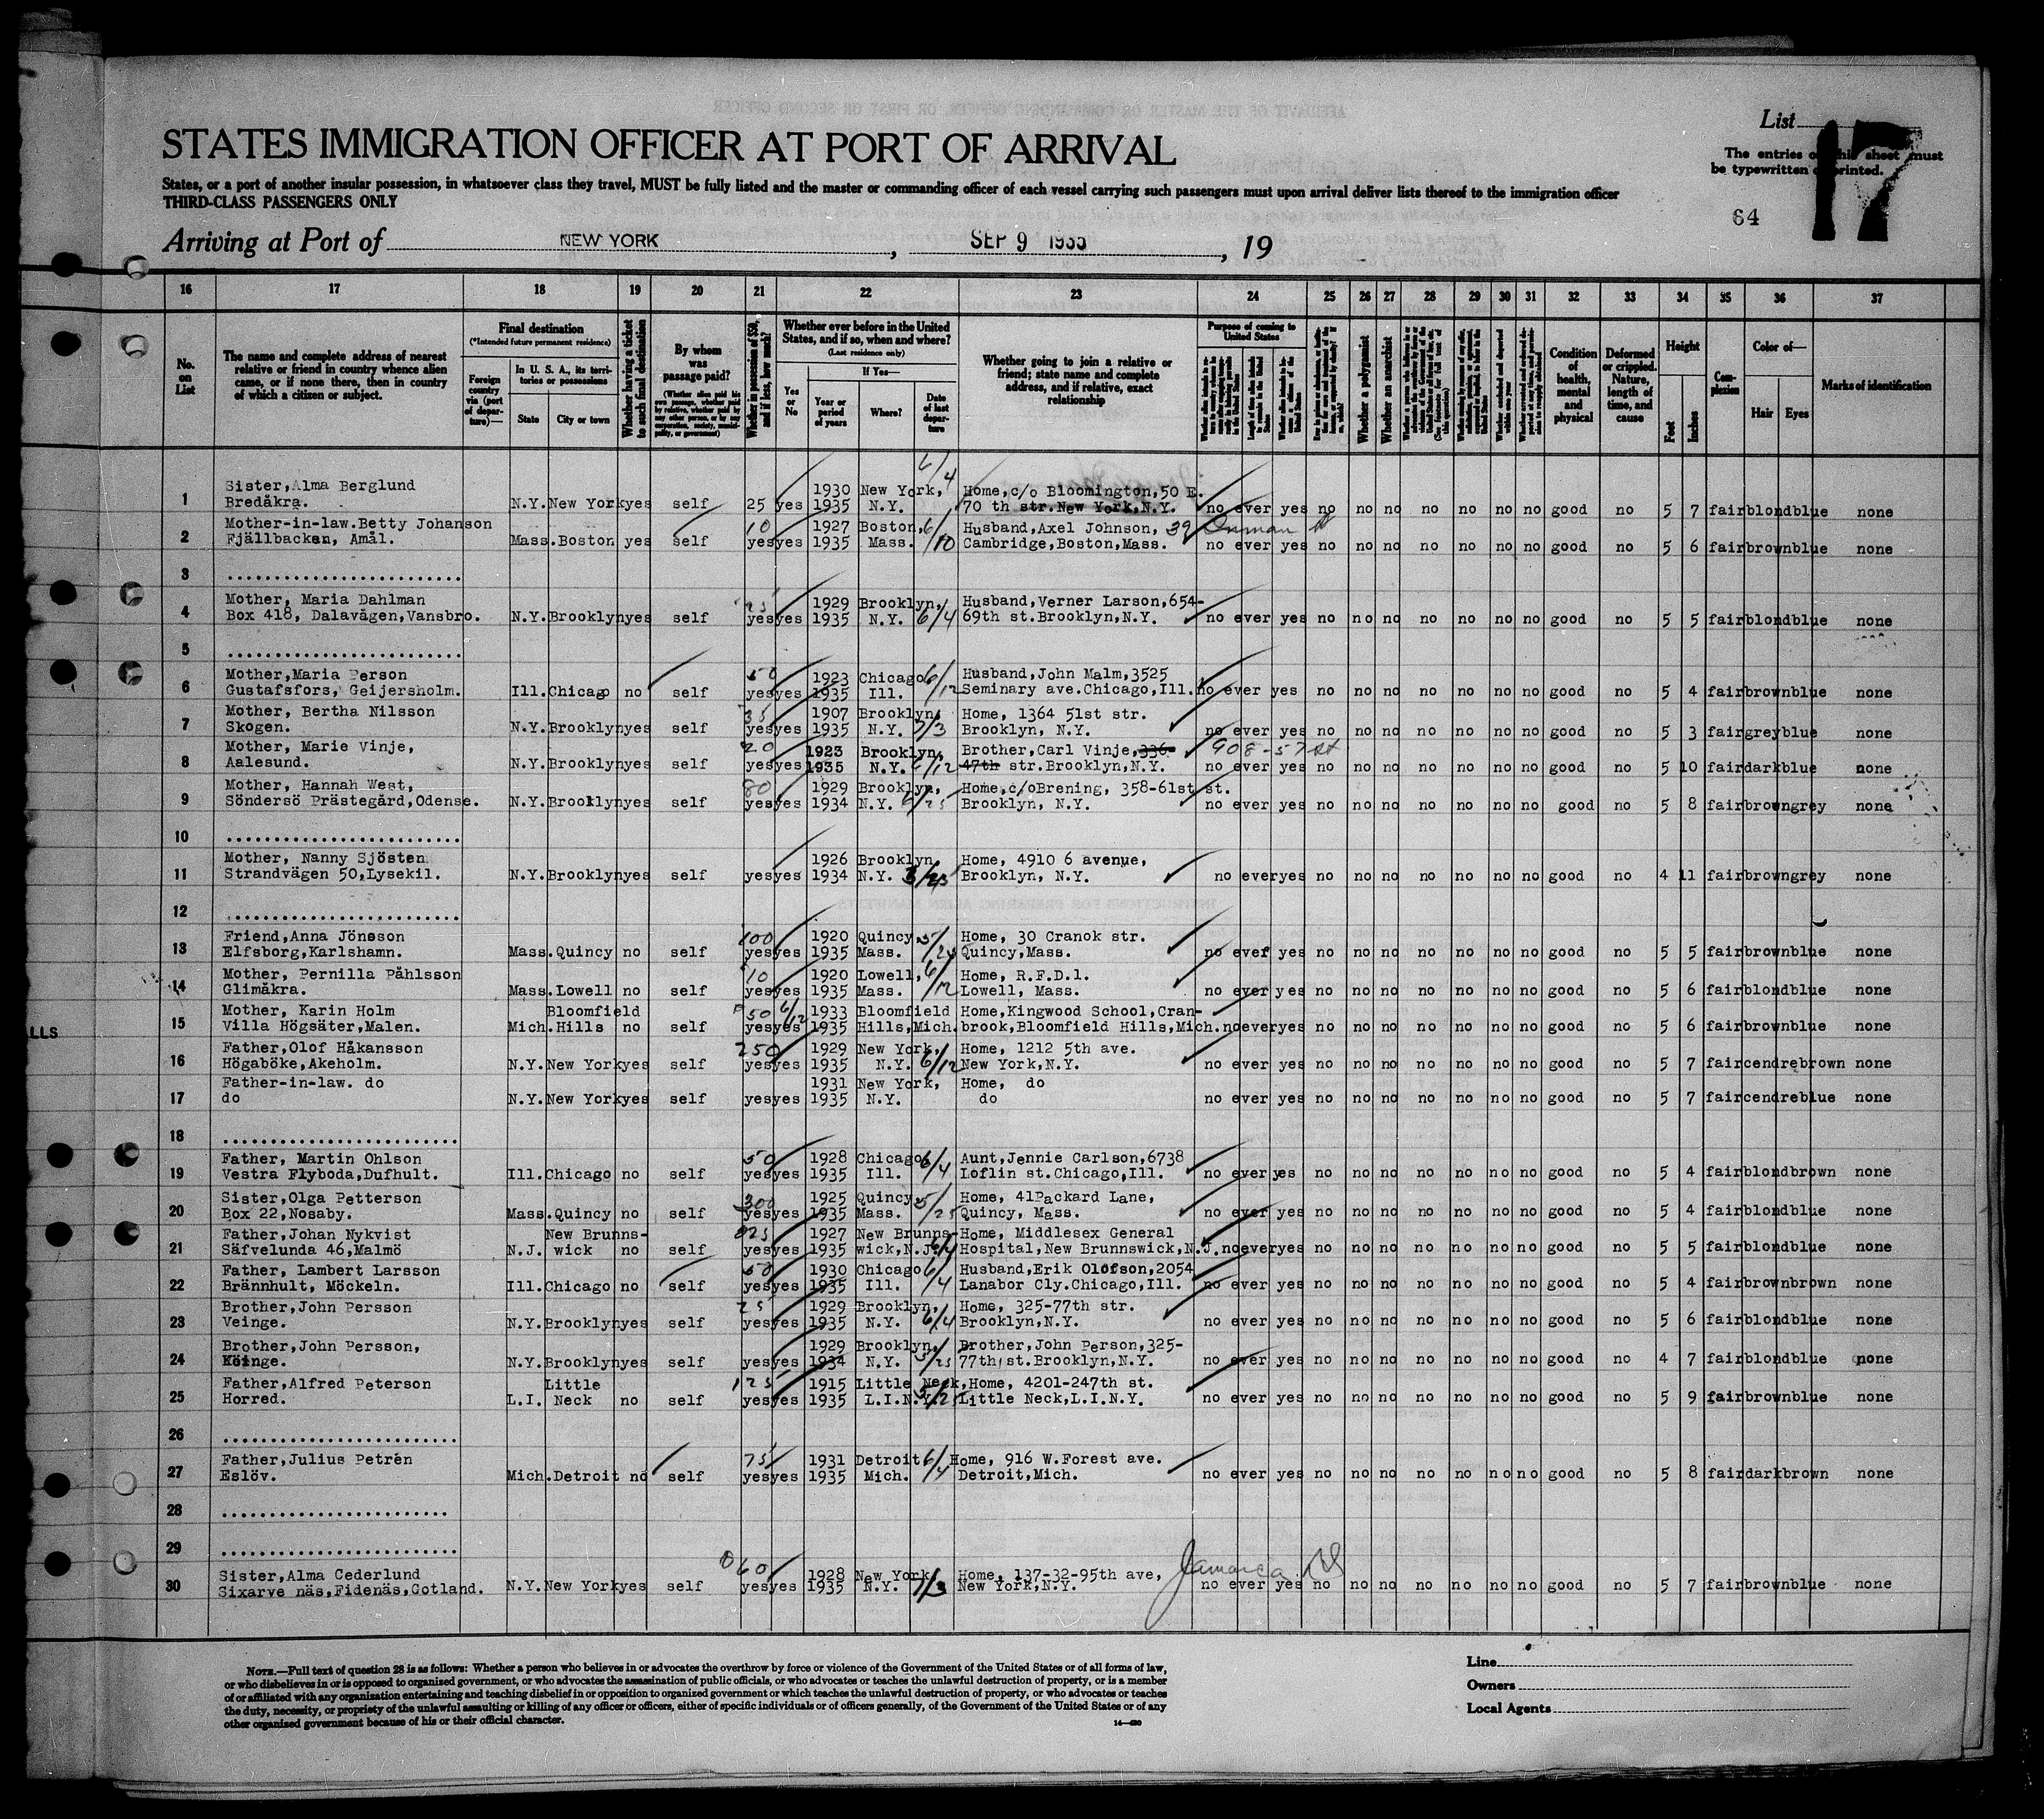 List 17
STATES IMMIGRATION OFFICER AT PORT OF ARRIVAL
The entries on this sheet must
be typewritten or printed.
States, or a port of another insular possession, in whatsoever class they travel, MUST be fully listed and the master or commanding officer of each vessel carrying such passengers must upon arrival deliver lists thereof to the immigration officer
THIRD-CLASS PASSENGERS ONLY
64
Arriving at Port of NEW YORK, SEP 9 1935, 19
16 17 18 19 20 21 22 23 24 25 26 27 28 29 30 31 32 33 34 35 36 37
No. on List
The name and complete address of nearest
relative or friend in country whence alien
came, or if none there, then in country
of which a citizen or subject.
Final destination
(*Intended future permanent residence)
Foreign country via (port of departure)—
In U. S. A., its territories or possessions
State
City or town
Whether having a ticket to such final destination
By whom was passage paid?
(Whether alien paid his own passage, whether paid by relative, whether paid by any other person, or by any corporation, society, municipality, or government)
Whether in possession of $50, and if less, how much?
Whether ever before in the United
States, and if so, when and where?
(Last residence only)
Yes or No
If Yes—
Year or period of years
Where?
Date of last departure
Whether going to join a relative or
friend; state name and complete
address, and if relative, exact
relationship
Purpose of coming to United States
Whether a polygamist
Whether an anarchist
Condition of health, mental and physical
Deformed or crippled. Nature, length of time, and cause
Height
Feet
Inches
Complexion
Color of—
Hair
Eyes
Marks of identification
6/4
Sister,Alma Berglund 1930 New York, Home,c/o Bloomington,50 E.
1 Bredåkra. N.Y. New York yes self 25 yes 1935 N.Y. 70 th str.New York,N.Y. no ever yes no no no no no no no good no 5 7 fair blond blue none
Mother-in-law.Betty Johanson 10 1927 Boston, 6/10 Husband,Axel Johnson, 39 Inman St
2 Fjällbacken, Amål. Mass. Boston yes self yes yes 1935 Mass. Cambridge,Boston,Mass. no ever yes no no no no no no no good no 5 6 fair brown blue none
3 ........................
Mother, Maria Dahlman 25 1929 Brooklyn, Husband,Verner Larson,654-
4 Box 418, Dalavägen,Vansbro. N.Y. Brooklyn yes self yes yes 1935 N.Y. 6/4 69th st.Brooklyn,N.Y. no ever yes no no no no no no no good no 5 5 fair blond blue none
5 ........................
Mother,Maria Person 50 1923 Chicago 6/12 Husband,John Malm,3525
6 Gustafsfors, Geijersholm. Ill. Chicago no self yes yes 1935 Ill. Seminary ave.Chicago,Ill. no ever yes no no no no no no no good no 5 4 fair brown blue none
Mother, Bertha Nilsson 35 1907 Brooklyn, Home, 1364 51st str.
7 Skogen. N.Y. Brooklyn yes self yes yes 1935 N.Y. 7/3 Brooklyn, N.Y. no ever yes no no no no no no no good no 5 3 fair grey blue none
Mother, Marie Vinje, 20 1923 Brooklyn, Brother,Carl Vinje,336- 908-57 St
8 Aalesund. N.Y. Brooklyn yes self yes yes 1935 N.Y. 6/12 47th str.Brooklyn,N.Y. no ever yes no no no no no no no good no 5 10 fair dark blue none
Mother, Hannah West, 80 1929 Brooklyn, Home,c/oBrening, 358-61st st.
9 Söndersö Prästegård,Odense. N.Y. Brooklyn yes self yes yes 1934 N.Y. 6/25 Brooklyn, N.Y. no ever yes no no no no no no no good no 5 8 fair brown grey none
10 ........................
Mother, Nanny Sjösten 1926 Brooklyn, Home, 4910 6 avenue,
11 Strandvägen 50,Lysekil. N.Y. Brooklyn yes self yes yes 1934 N.Y. Brooklyn, N.Y. no ever yes no no no no no no no good no 4 11 fair brown grey none
12 ........................
Friend,Anna Jönsson 100 1920 Quincy Home, 30 Cranok str.
13 Elfsborg,Karlshamn. Mass. Quincy no self yes yes 1935 Mass. Quincy,Mass. no ever yes no no no no no no no good no 5 5 fair brown blue none
Mother, Pernilla Påhlsson 10 1920 Lowell, 6/12 Home, R.F.D.1.
14 Glimåkra. Mass. Lowell no self yes yes 1935 Mass. Lowell, Mass. no ever yes no no no no no no no good no 5 6 fair blond blue none
Mother, Karin Holm Bloomfield 50 6/12 1933 Bloomfield Home,Kingwood School,Cran-
15 Villa Högsäter,Malen. Mich. Hills no self yes yes 1935 Hills,Mich. brook,Bloomfield Hills,Mich. no ever yes no no no no no no no good no 5 6 fair brown blue none
LLS
Father,Olof Håkansson 250 1929 New York, Home, 1212 5th ave.
16 Högaböke,Akeholm. N.Y. New York yes self yes yes 1935 N.Y. 6/12 New York,N.Y. no ever yes no no no no no no no good no 5 7 fair cendre brown none
Father-in-law. do 1931 New York, Home, do
17 do N.Y. New York yes self yes yes 1935 N.Y. do no ever yes no no no no no no no good no 5 7 fair cendre blue none
18 ........................
Father, Martin Ohlson 50 1928 Chicago 6/4 Aunt,Jennie Carlson,6738
19 Vestra Flyboda,Dufhult. Ill. Chicago no self yes yes 1935 Ill. Loflin st.Chicago,Ill. no ever yes no no no no no no no good no 5 4 fair blond brown none
Sister,Olga Petterson 300 1925 Quincy 5/25 Home, 41Packard Lane,
20 Box 22,Nosaby. Mass. Quincy no self yes yes 1935 Mass. Quincy, Mass. no ever yes no no no no no no no good no 5 4 fair blond blue none
Father, Johan Nykvist New Brunns- 25 1927 New Brunns- Home, Middlesex General
21 Säfvelunda 46,Malmö N.J. wick no self yes yes 1935 wick,N.J. Hospital,New Brunnswick,N.J. no ever yes no no no no no no no good no 5 5 fair blond blue none
Father, Lambert Larsson 50 1930 Chicago 6/4 Husband,Erik Olofson,2054
22 Brännhult, Möckeln. Ill. Chicago no self yes yes 1935 Ill. Lanabor Cly.Chicago,Ill. no ever yes no no no no no no no good no 5 4 fair brown brown none
Brother,John Persson 25 1929 Brooklyn, Home, 325-77th str.
23 Veinge. N.Y. Brooklyn yes self yes yes 1935 N.Y. 6/4 Brooklyn,N.Y. no ever yes no no no no no no no good no 5 6 fair blond blue none
Brother,John Persson, 1929 Brooklyn, Brother,John Person,325-
24 Köinge. N.Y. Brooklyn yes self yes yes 1934 N.Y. 5/25 77th st.Brooklyn,N.Y. no ever yes no no no no no no no good no 4 7 fair blond blue none
Father,Alfred Peterson Little 125 1915 Little Neck, Home, 4201-247th st.
25 Horred. L.I. Neck no self yes yes 1935 L.I.N.Y. Little Neck,L.I.N.Y. no ever yes no no no no no no no good no 5 9 fair brown blue none
26 ........................
Father,Julius Petrén 75 1931 Detroit 6/4 Home, 916 W.Forest ave.
27 Eslöv. Mich. Detroit no self yes yes 1935 Mich. Detroit,Mich. no ever yes no no no no no no no good no 5 8 fair dark brown none
28 ........................
29 ........................
Sister,Alma Cederlund 60 1928 New York, Home, 137-32-95th ave, Jamaica
30 Sixarve näs,Fidenäs,Gotland. N.Y. New York yes self yes yes 1935 N.Y. 7/3 New York,N.Y. no ever yes no no no no no no no good no 5 7 fair brown blue none
NOTE.—Full text of question 28 is as follows: Whether a person who believes in or advocates the overthrow by force or violence of the Government of the United States or of all forms of law,
or who disbelieves in or is opposed to organized government, or who advocates the assassination of public officials, or who advocates or teaches the unlawful destruction of property, or is a member
of or affiliated with any organization entertaining and teaching disbelief in or opposition to organized government or which teaches the unlawful destruction of property, or who advocates or teaches
the duty, necessity, or propriety of the unlawful assaulting or killing of any officer or officers, either of specific individuals or of officers generally, of the Government of the United States or of any
other organized government because of his or their official character.
14—420
Line
Owners
Local Agents